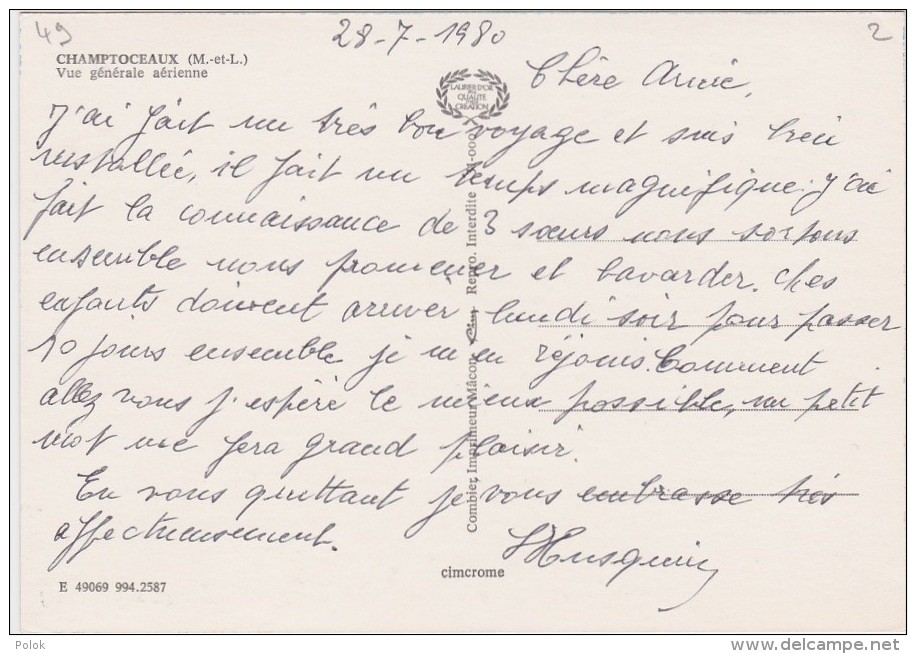 49
28-7-1980
2
CHAMPTOCEAUX (M.-et-L.)
Vue générale aérienne
LAURIER D'OR
DE LA
QUALITÉ
CRÉATION
Chère Amie,
J'ai fait un très bon voyage et suis bien
installée, il fait un temps magnifique. J'ai
fait la connaissance de 3 sœurs nous sortons
ensemble nous promener et bavarder. Mes
enfants doivent arriver lundi soir pour passer
10 jours ensemble je m'en réjouis. Comment
allez vous j'espère le mieux possible, un petit
mot me fera grand plaisir.
En vous quittant je vous embrasse très
affectueusement.
Combier Imprimeur Mâcon Repro. Interdite
cimcrome
E 49069 994.2587
Polok
www.delcampe.net